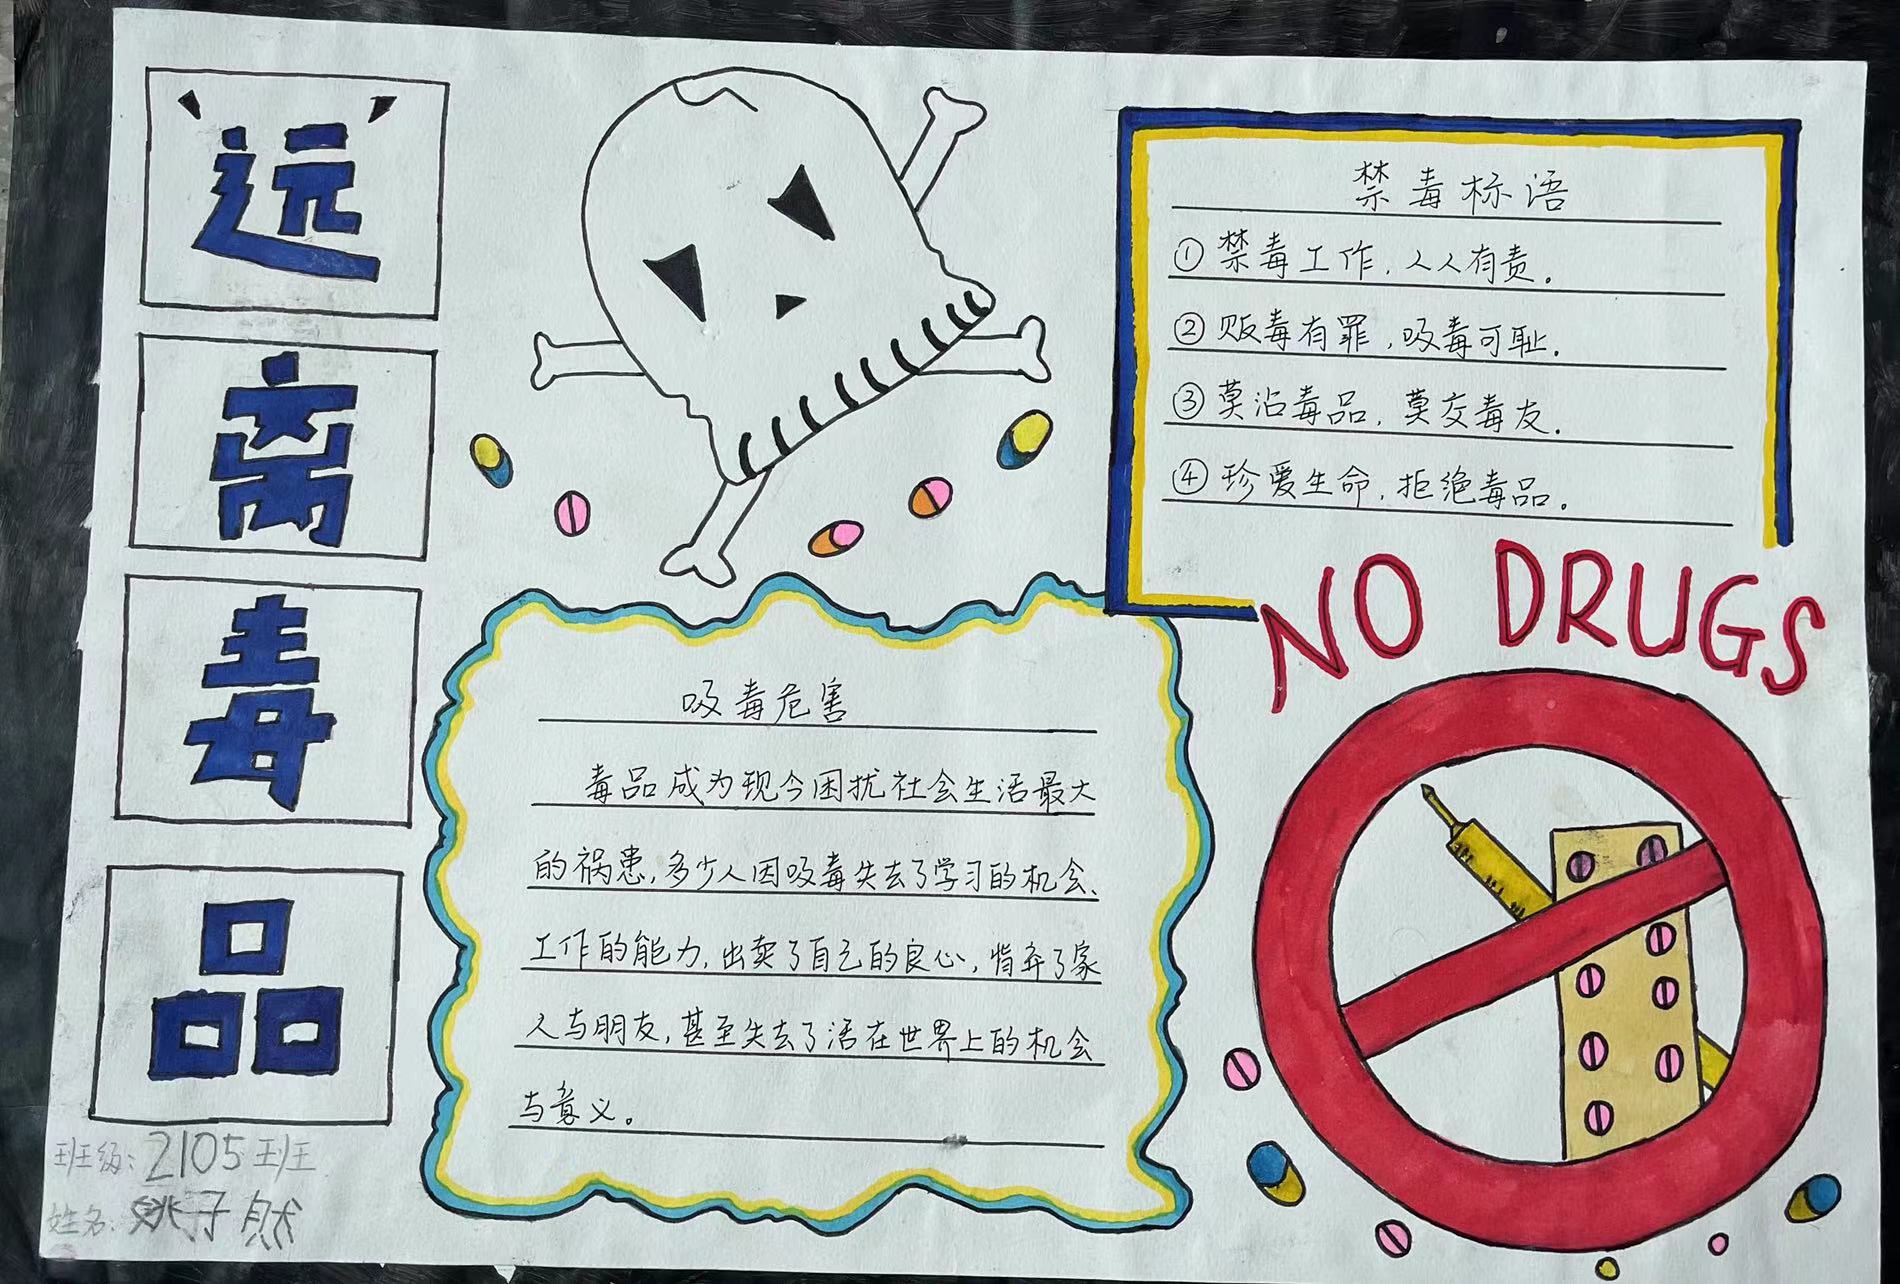 远
离
毒
品
班级：2105班
姓名：姚子然
禁毒标语
①禁毒工作，人人有责。
②贩毒有罪，吸毒可耻。
③莫沾毒品，莫交毒友。
④珍爱生命，拒绝毒品。
NO DRUGS
吸毒危害
毒品成为现今困扰社会生活最大
的祸患，多少人因吸毒失去了学习的机会、
工作的能力，出卖了自己的良心，背弃了家
人与朋友，甚至失去了活在世界上的机会
与意义。